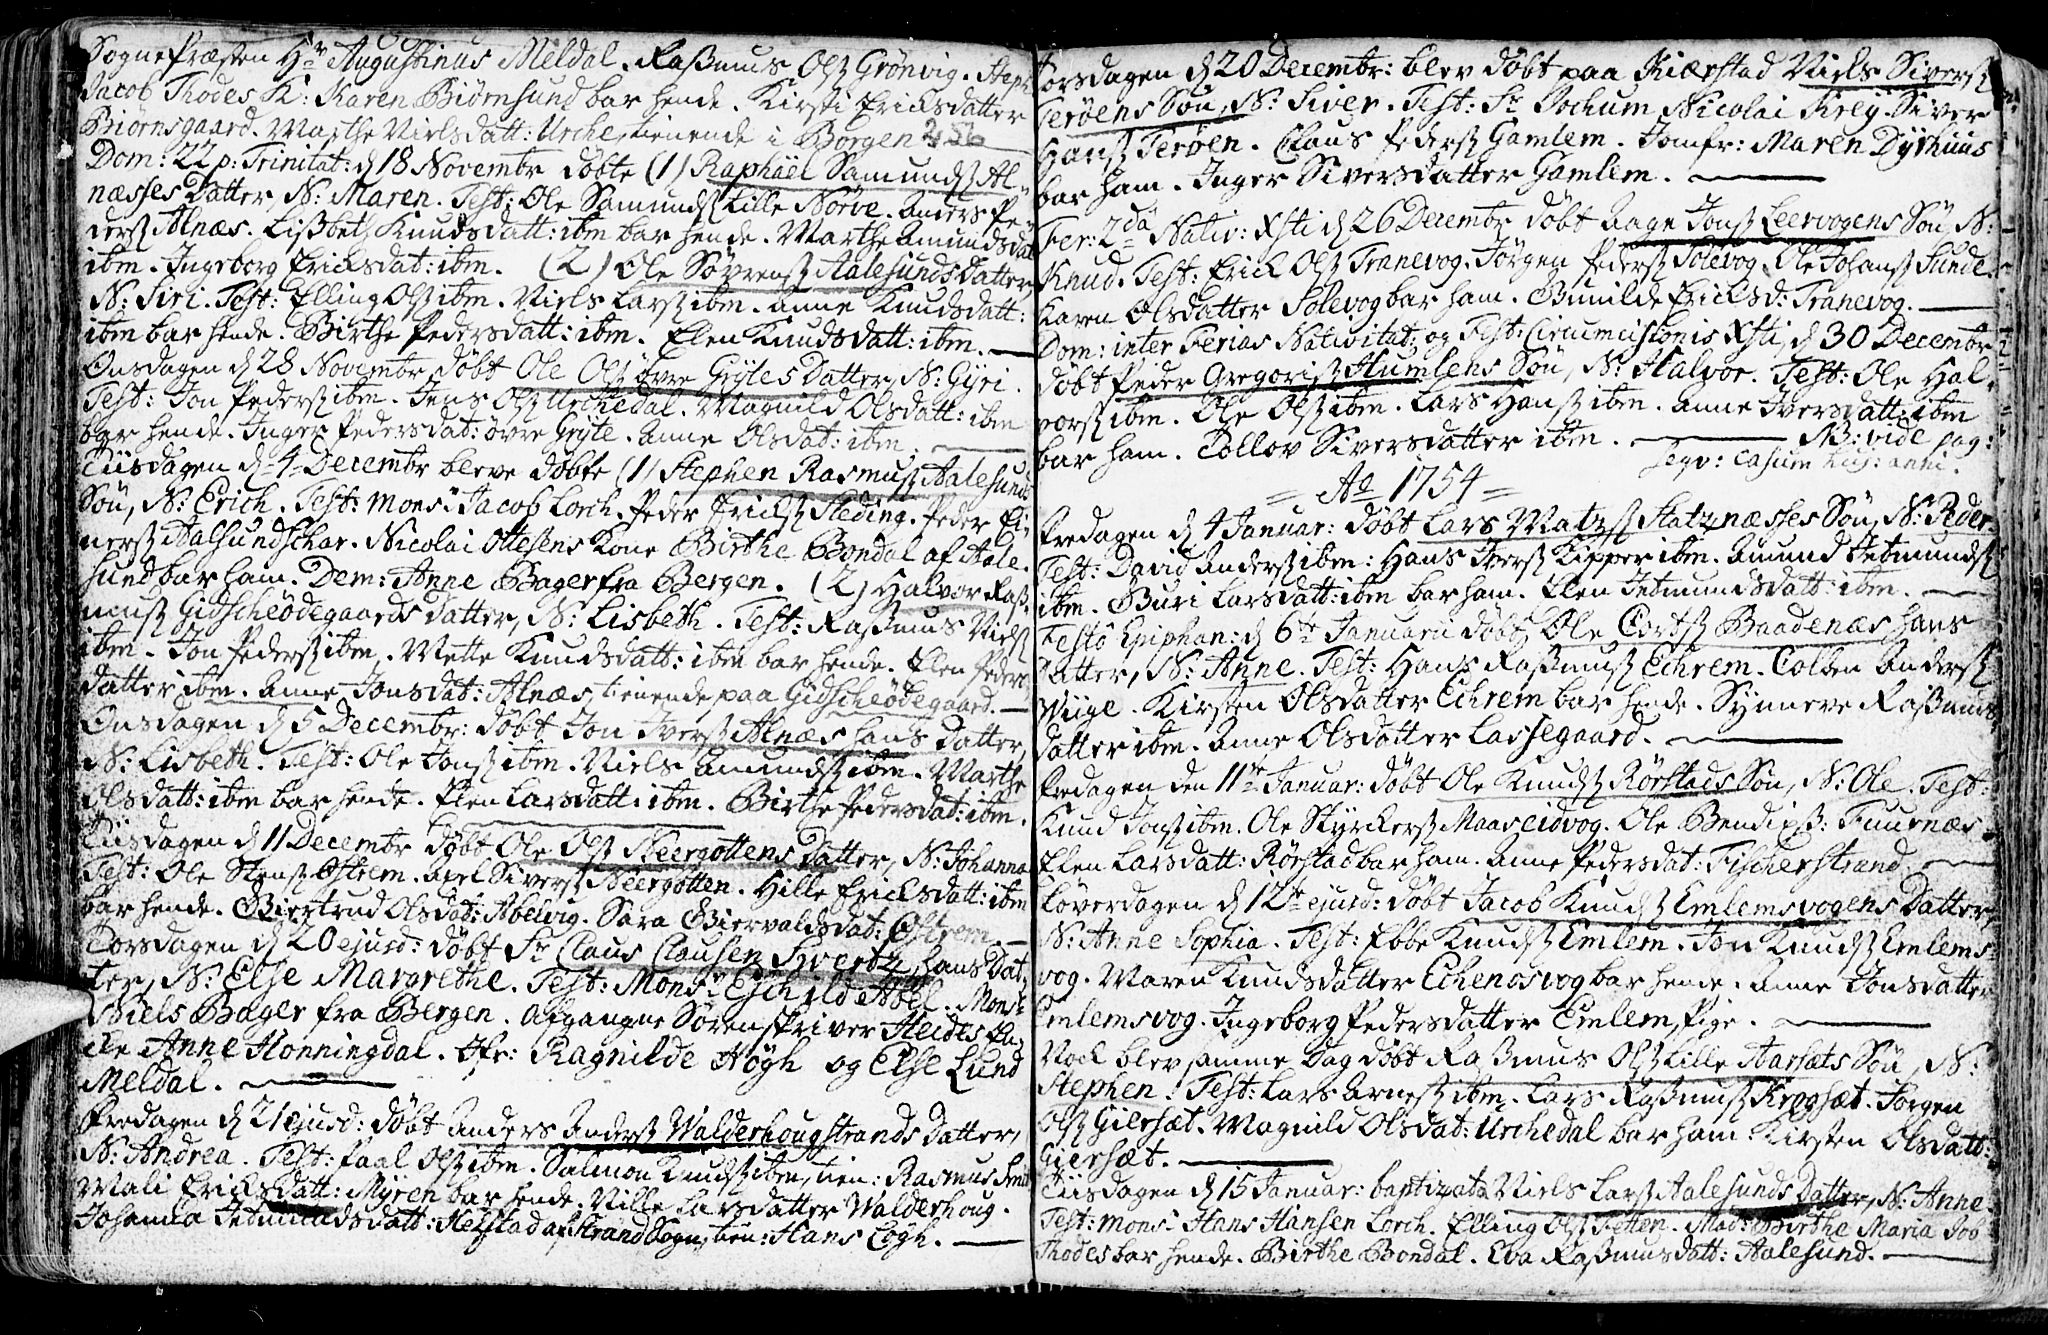 SognePræsten Hr Augustinus Meldal. Rasmus Olss Grönvig. Steph
Jacob Thodes K: Karen Biörnsund bar hende. Kirsti Ericksdatter
Biörnsgaard. Marthe Nielsdatt: Urche, tienende i Borgen 256
Dom: 22 p: Trinitat: d 18 Novembr döbte (1) Raphäel Samundss Al-
næsses Datter, N: Maren. Test: Ole Samundss Lille Nörve. Anders Pe-
derss Alnæs. Lisbeth Knudsdatt: ibm bar hende. Marthe Amundsdat
ibm. Ingeborg Ericksdat: ibm. (2) Ole Sövrenss Aalesunds Datter,
N: Siri. Test: Elling Olss ibm. Niels Larss ibm. Anne Knudsdatt:
ibm bar hende. Birthe Pedersdatt: ibm. Elen Knudsdatt: ibm.
Onsdagen d 28 Novembr, döbt Ole Olss övre Gryles Datter, N: Gyri.
Test: Jon Pederss ibm. Jens Olss Urchedal. Magnild Olsdatt: ibm
bar hende. Inger Pedersdat: övre Gryte. Anne Olsdat: ibm.
Tiisdagen d 4 Decembr bleve döbte (1) Stephen Rasmuss Aalesunds
Sön, N: Erich. Test: Monsr Jacob Lorch. Peder Erickss Steding. Peder Ei-
nerss Aalsundschar. Nicolai Ottesens Kone Birthe Bondal af Aale-
sund bar ham. Dem: Anne Bager fra Bergen. (2) Halvor Ras-
muss Gidscheödegaards Datter, N: Lisbeth. Test: Rasmus Nielss
ibm. Jon Pederss ibm. Mette Knudsdatt: ibm bar hende. Elen Peders
datter ibm. Anne Jonsdat: Alnæs, tienende paa Gidscheödegaard.
Onsdagen d 5 Decembr: döbt Jon Iverss Alnæs hans Datter,
N: Lisbeth. Test: Ole Jonss ibm. Niels Amundss ibm. Marthe
Olsdatt: ibm bar hende. Elen Larsdatt: ibm. Birthe Pedersdat: ibm.
Tiisdagen d 11 Decembr döbt Ole Olss Neergottens Datter, N: Johanna
Test: Ole Stenss Østrem. Axel Siverss Neergotten. Hille Ericksdatt: ibm
bar hende. Giertrud Olsdat: Abelvig. Sara Giervaldsdat: Østrem.
Torsdagen d 20 ejusd: döbt Sr Claus Clausen Svertz, hans Dat-
ter, N: Else Margrethe. Test: Monsr Eschild Abel. Monsr
Niels Bager fra Bergen. Afgangne Sorenskriver Heides En-
cke Anne Honningdal. Jfr: Ragnilde Högh og Else Lund
Meldal.
Fredagen d 21 ejusd: döbt Anders Anderss Walderhougstrands Datter,
N: Andrea. Test: Paal Olss ibm. Salmon Knudss ibm, tien: Rasmus
Mali Ericksdatt: Myren bar hende. Nille Larsdatter Walderhoug.
Johanna Jetmundsdatt: Nesstad af Strand Sogn, tien: Hans Cogh.
Torsdagen d 20 Decembr: blev döbt paa Kierstad Niels Siverss
Teröens Sön, N: Siver. Test: Sr Jochum Nicolai Krey. Siver
Hanss Teröen. Claus Pederss Gamlem. Jomfr: Maren Dyrhuus
bar ham. Inger Siversdatter Gamlem.
Fer: 2da Nativ: Xsti d 26 Decembr döbt Aage Jonss Leervogens Sön, N:
Knud. Test: Erick Olss Tranevog. Jörgen Pederss Solevog. Ole Johanss Sunde.
Karen Olsdatter Solevog bar ham. Gunilde Ericksd: Tranevog.
Dom: inter Ferias Nativitat: og Fest: Circumcisionis Xsti, d 30 Decembr
döbt Peder Gregoriss Humlens Sön, N: Halvor. Test: Ole Hal-
vorss ibm. Ole Olss ibm. Lars Hanss ibm. Anne Iversdatt: ibm
bar ham. Collov Siversdatter ibm. NB: vide pag:
seqv: casum huj: anni.
= Ao 1754 =
Fredagen d 4 Januar: döbt Lars Matzss Slatznæsses Sön, N: Peder.
Test: David Anderss ibm: Hans Iverss Kipper ibm. Amund Jetmundss
ibm. Guri Larsdatt: ibm bar ham. Elen Jetmundsdatt: ibm.
Festo Epiphan: d 6te Januarii döbt Ole Cortss Baadenæs hans
Datter, N: Anne. Test: Hans Rasmuss Echrem. Colben Anderss
Wiige. Kirsten Olsdatter Echrem bar hende. Synneve Rasmus
datter ibm. Anne Olsdatter Lassegaard.
Fredagen den 11te Januar: döbt Ole Knudss Rörstads Sön, N: Ole. Test:
Knud Jonss ibm. Ole Styrckerss Maaseidvog. Ole Bendixss: Fuurnæs.
Elen Larsdatt: Rörstad bar ham. Anne Pedersdat: Fischerstrand.
Löverdagen d 12te ejusd: döbt Jacob Knudss Emlemsvogens Datter,
N: Anne Sophia. Test: Ebbe Knudss Emlem. Jon Knudss Emlems-
vog. Maren Knudsdatter Echenosvog bar hende. Anne Jonsdatter
Emlemsvog. Ingeborg Pedersdatter Emlem, Pige.
Noch blev samme Dag döbt Rasmus Olss Lille Aarsæts Sön, N:
Stephen. Test: Lars Arness ibm. Lars Rasmuss Krogsæt. Jörgen
Olss Giersæt. Magnild Olsdat: Urchedal bar ham. Kirsten Olsdatt:
Giersæt.
Tiisdagen d 15 Januar: baptizata Niels Larss Aalesunds Datter, N: Anne.
Test: Monsr Hans Hansen Lorch. Elling Olss Fetten. Mad: Birthe Maria Job
Thodes bar hende. Birthe Bondal. Eva Rasmusdatt: Aalesund.